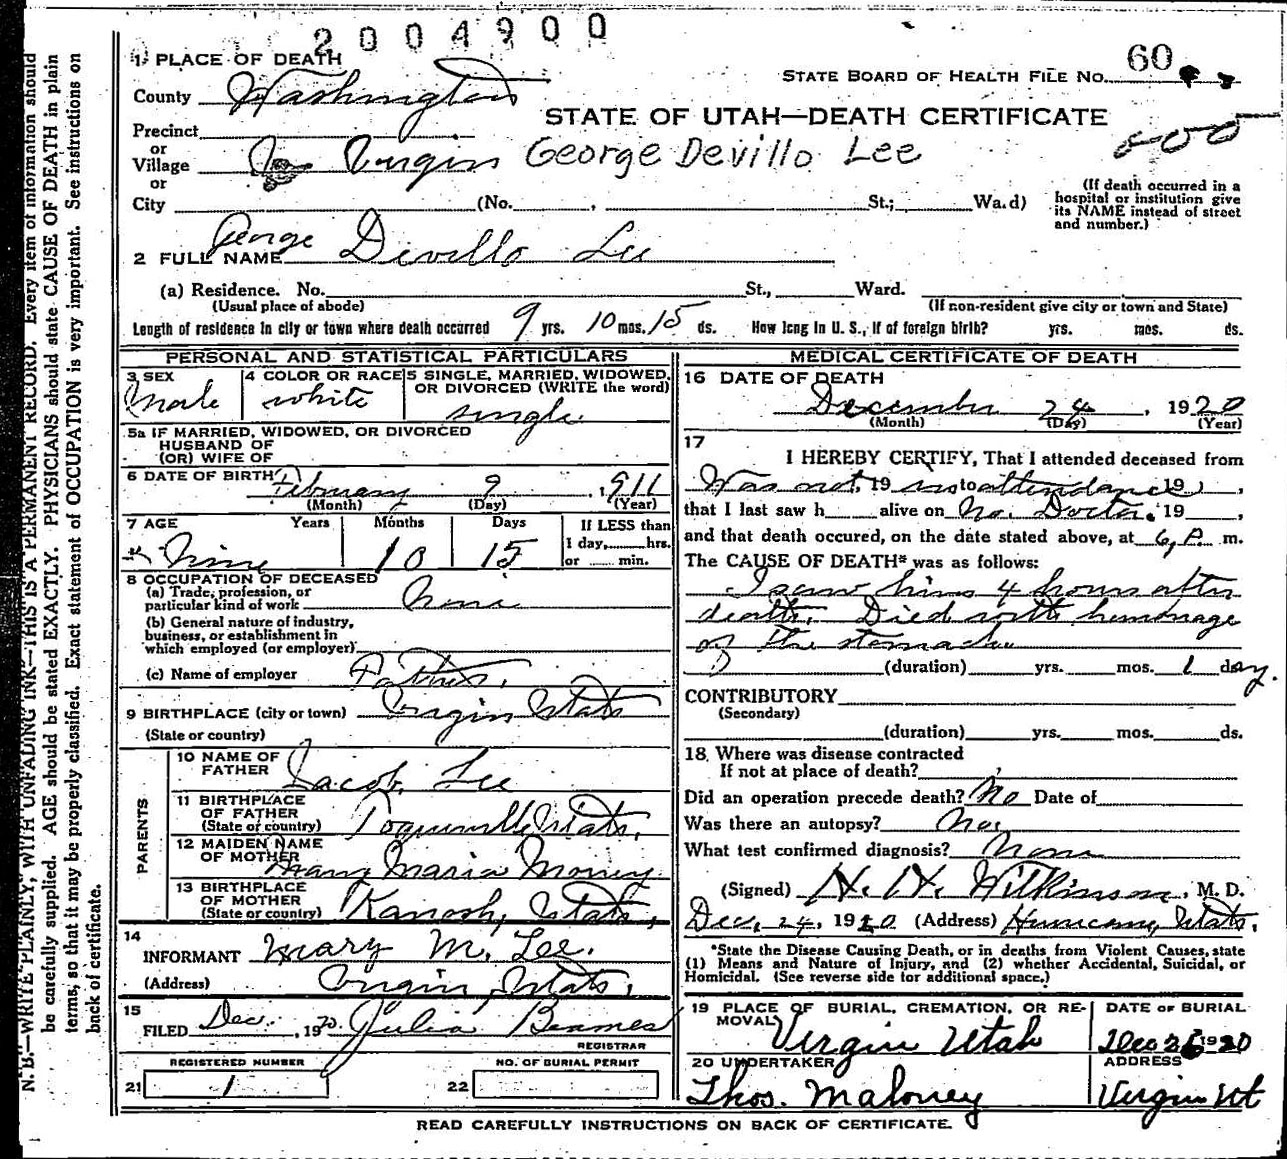 2004900
1 PLACE OF DEATH
STATE BOARD OF HEALTH FILE No. 60
County Washington
STATE OF UTAH—DEATH CERTIFICATE
Precinct
or
Village Virgin George Devillo Lee
or
City (No. , St.; Ward)
(If death occurred in a
hospital or institution give
its NAME instead of street
and number.)
2 FULL NAME George Devillo Lee
(a) Residence. No. St., Ward.
(Usual place of abode) (If non-resident give city or town and State)
Length of residence in city or town where death occurred 9 yrs. 10 mos. 15 ds. How long in U. S., if of foreign birth? yrs. mos. ds.
PERSONAL AND STATISTICAL PARTICULARS
3 SEX
Male
4 COLOR OR RACE
white
5 SINGLE, MARRIED, WIDOWED,
OR DIVORCED (WRITE the word)
single
5a IF MARRIED, WIDOWED, OR DIVORCED
HUSBAND OF
(OR) WIFE OF
6 DATE OF BIRTH February 9, 1911
(Month) (Day) (Year)
7 AGE Years Months Days
Nine 10 15
If LESS than
1 day, hrs.
or min.
8 OCCUPATION OF DECEASED
(a) Trade, profession, or
particular kind of work None
(b) General nature of industry,
business, or establishment in
which employed (or employer)
(c) Name of employer Father.
9 BIRTHPLACE (city or town) Virgin Utah
(State or country)
PARENTS
10 NAME OF
FATHER Jacob Lee
11 BIRTHPLACE
OF FATHER
(State or country) Toquerville Utah.
12 MAIDEN NAME
OF MOTHER Mary Maria
13 BIRTHPLACE
OF MOTHER
(State or country) Kanosh, Utah,
14
INFORMANT Mary M. Lee.
(Address) Virgin, Utah.
15
FILED Dec. , 1920 Julia Beames
REGISTRAR
REGISTERED NUMBER NO. OF BURIAL PERMIT
21 1 22
MEDICAL CERTIFICATE OF DEATH
16 DATE OF DEATH
December 24, 1920
(Month) (Day) (Year)
17
I HEREBY CERTIFY, That I attended deceased from
Was not, 19 in to attendance 19 ,
that I last saw h alive on No Doctor. 19 ,
and that death occured, on the date stated above, at 6, P. m.
The CAUSE OF DEATH* was as follows:
I saw him 4 hours after
death. Died with hemorrage
of the stomach
(duration) yrs. mos. 1 day.
CONTRIBUTORY
(Secondary)
(duration) yrs. mos. ds.
18. Where was disease contracted
If not at place of death?
Did an operation precede death? No Date of
Was there an autopsy? No.
What test confirmed diagnosis? None
(Signed) H. H. Wilkinson, M. D.
Dec. 24, 1920 (Address) Hurricane, Utah.
*State the Disease Causing Death, or in deaths from Violent Causes, state
(1) Means and Nature of Injury, and (2) whether Accidental, Suicidal, or
Homicidal. (See reverse side for additional space.)
19 PLACE OF BURIAL, CREMATION, OR RE-
MOVAL Virgin Utah
DATE OF BURIAL
Dec 26 1920
20 UNDERTAKER
Thos. Maloney
ADDRESS
Virgin Ut
READ CAREFULLY INSTRUCTIONS ON BACK OF CERTIFICATE.
N. B.—WRITE PLAINLY, WITH UNFADING INK—THIS IS A PERMANENT RECORD. Every item of information should
be carefully supplied. AGE should be stated EXACTLY. PHYSICIANS should state CAUSE OF DEATH in plain
terms, so that it may be properly classified. Exact statement of OCCUPATION is very important. See instructions on
back of certificate.